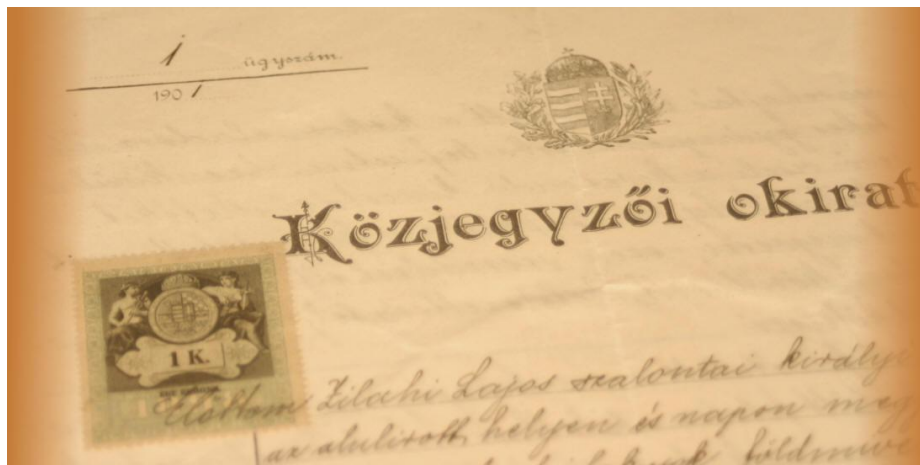 1 ügyszám.
1901
Közjegyzői okirat
1 K.
Előttem Zilahi Lajos szalontai király
az alulirott helyen és napon meg
földműve